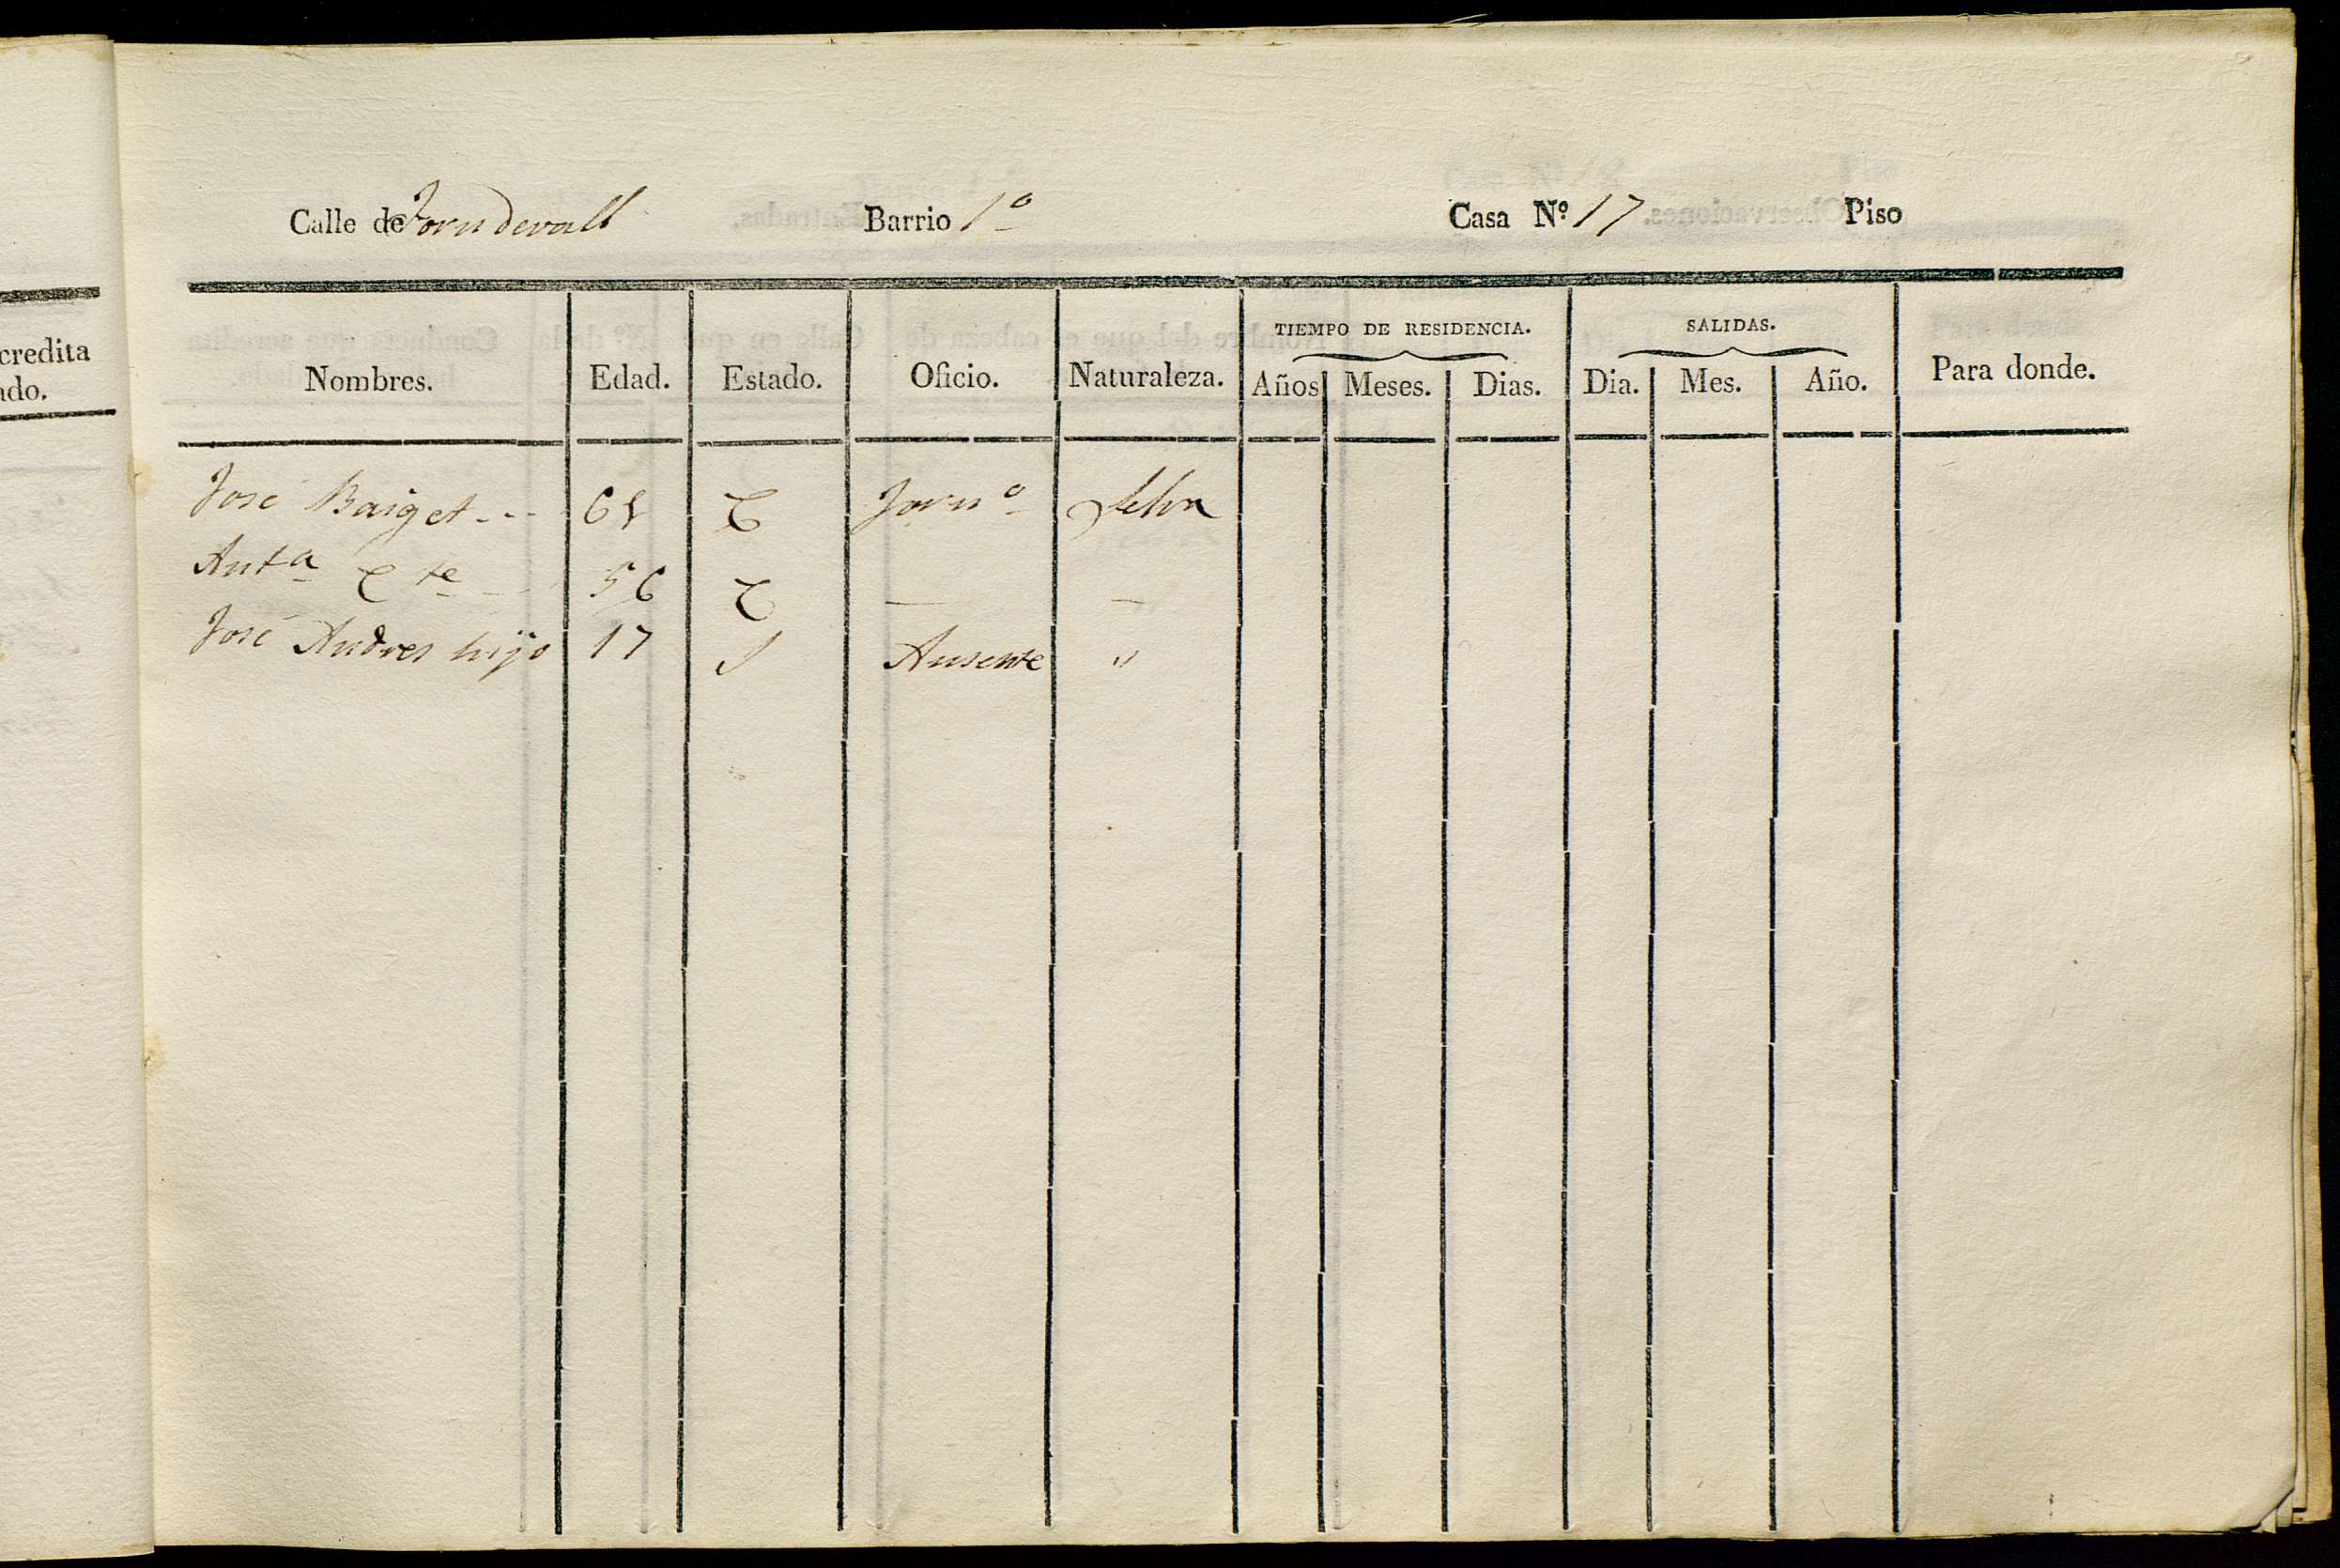 credita
ado.
Calle de Forn devall Barrio 1º Casa Nº 17 Piso
TIEMPO DE RESIDENCIA. SALIDAS.
Nombres. Edad. Estado. Oficio. Naturaleza. Años Meses. Dias. Dia. Mes. Año. Para donde.
José Baiget --- C Jornº Selva
Antª C te 56 C — —
José Andres hijo 17 S Ausente "